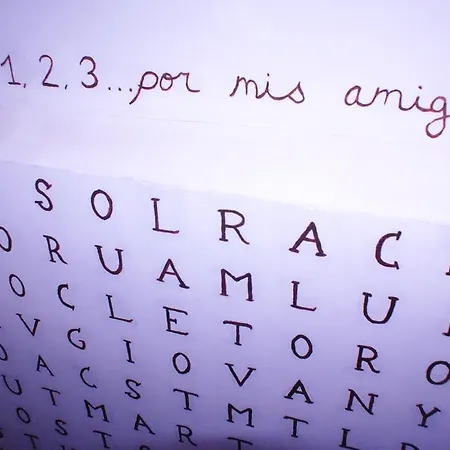 1, 2, 3 ...por mis amig
S O L R A C
O R U A M L U
O C L E T O R O
V G I O V A N Y
A C S T M T L
U T M A R T
O S T